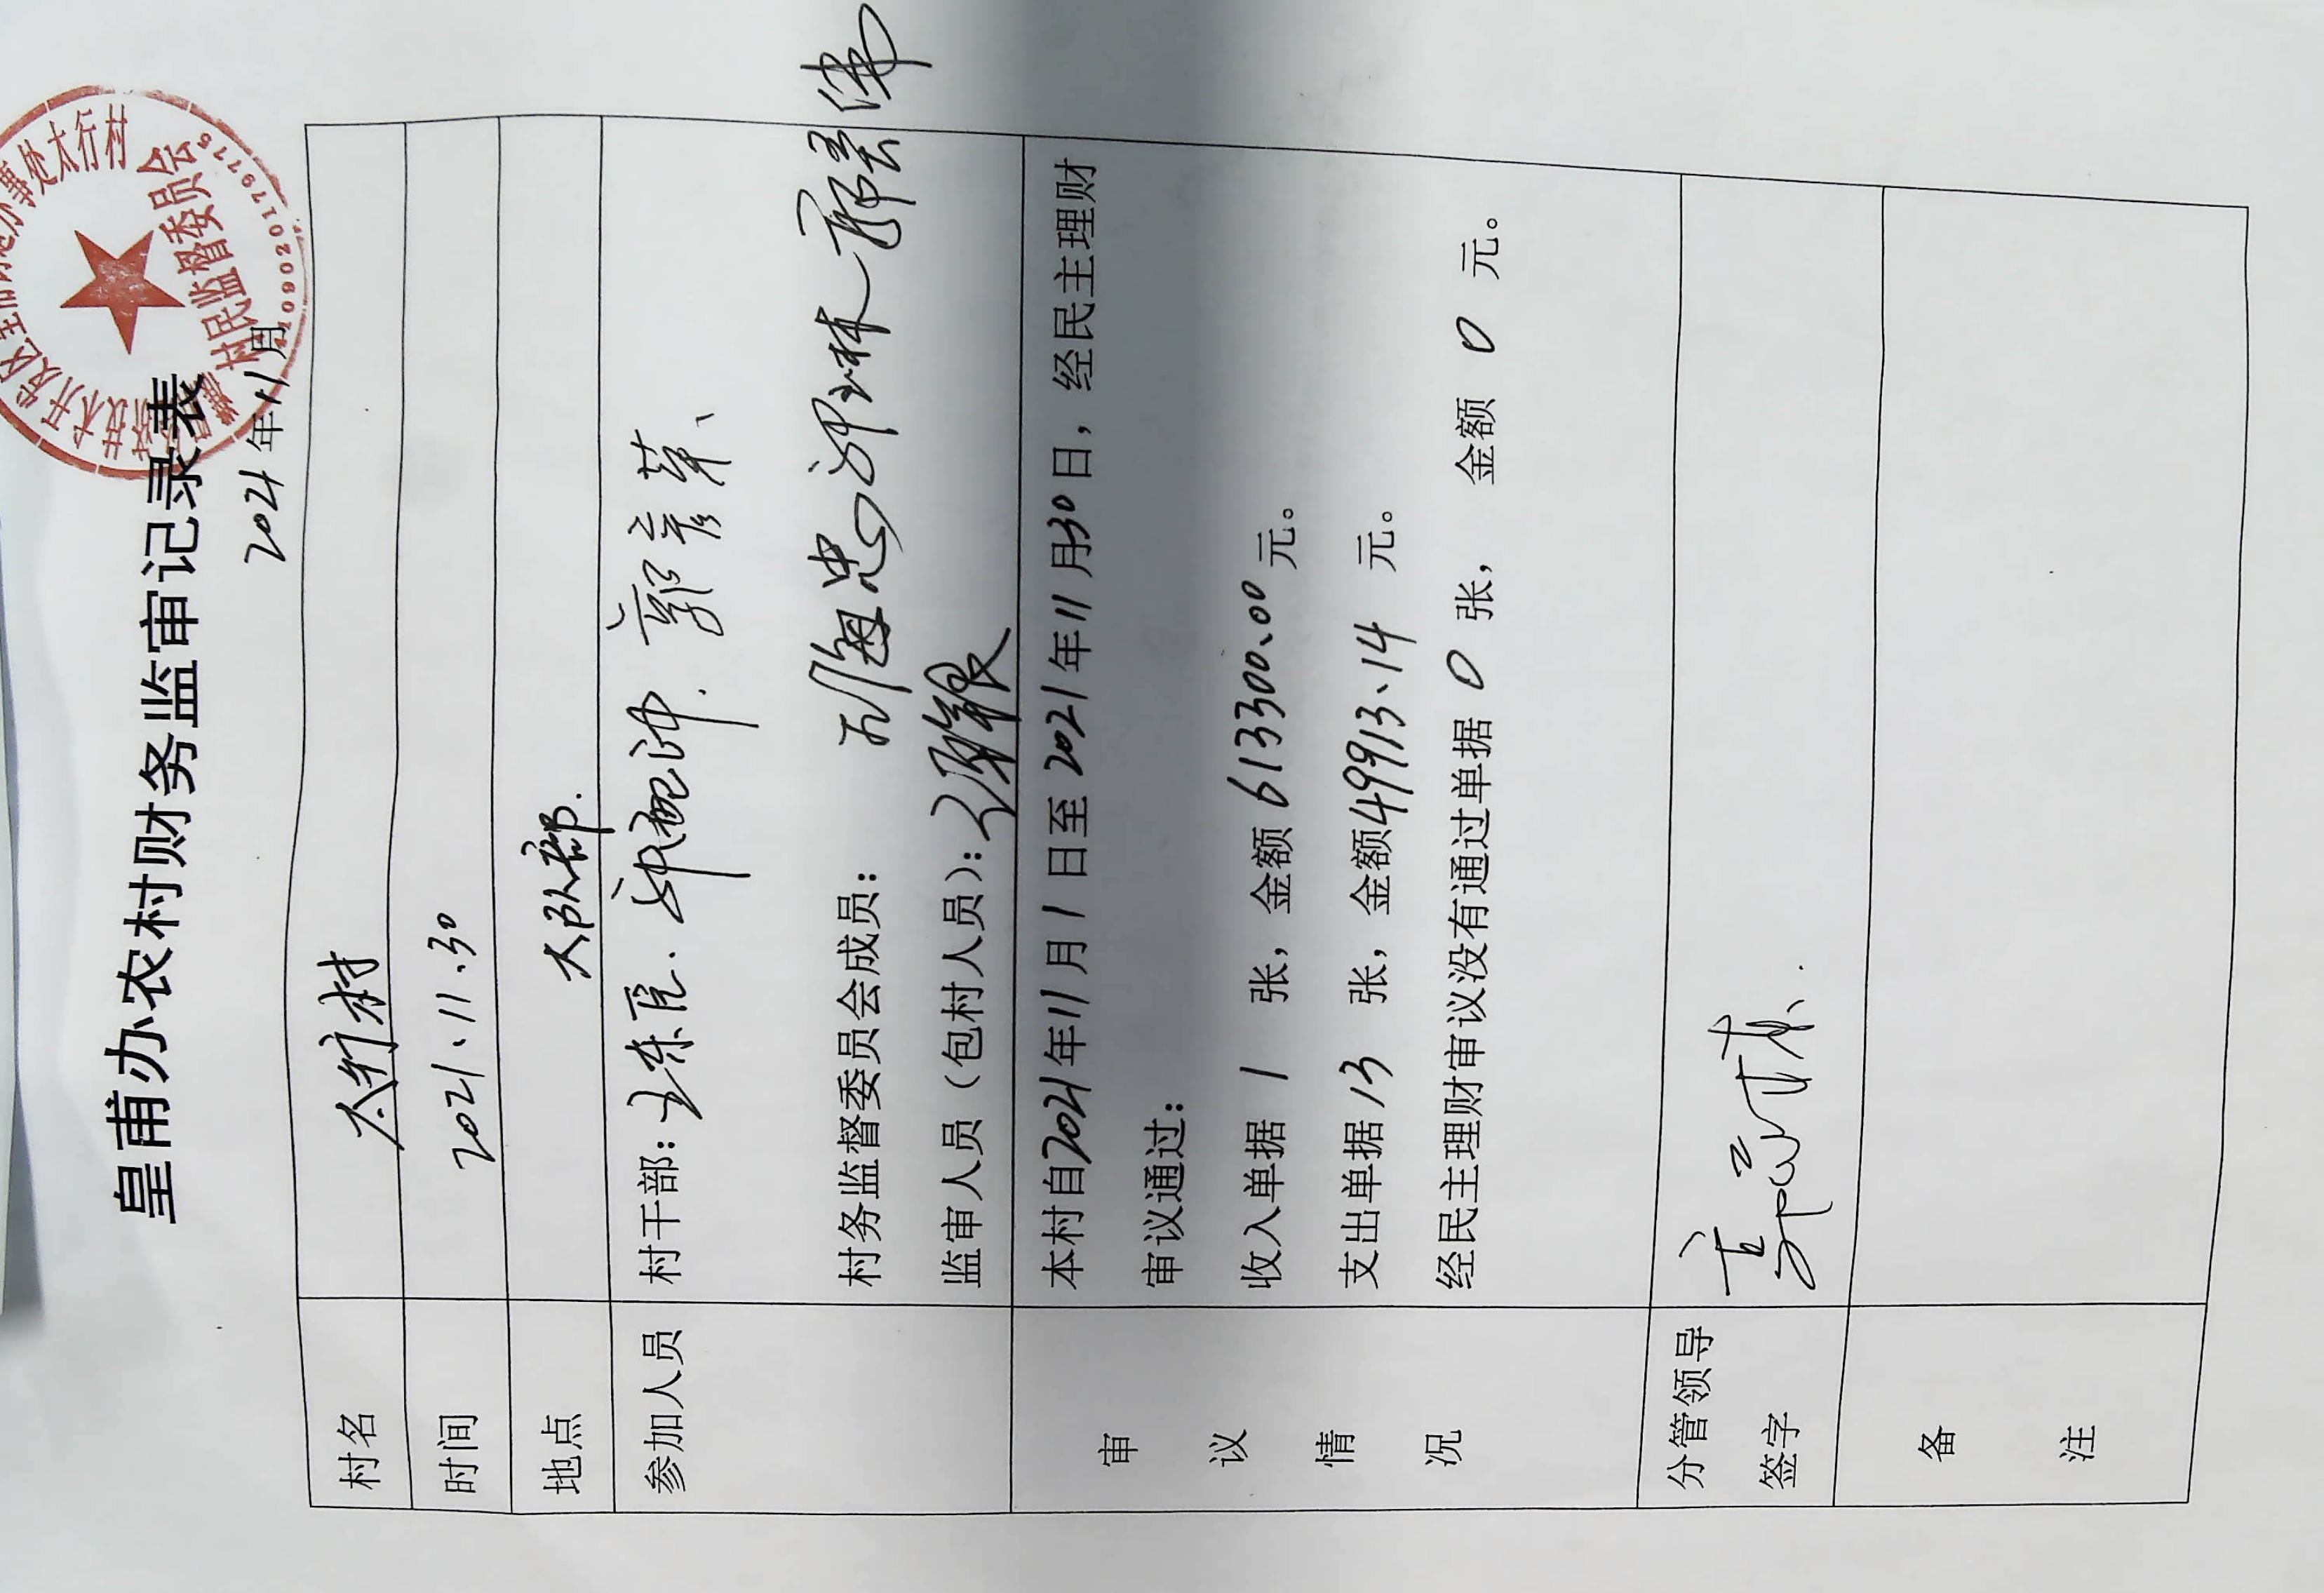 皇甫办农村财务监审记录表
办事处太行村
村民监督委员会
1090201797
2021年11月
村名 太行村
时间 2021、11、30
地点 大队部.
参加人员 村干部： 郭彦苹、
村务监督委员会成员：
监审人员（包村人员）：
审议情况 本村自2021年11月1日至2021年11月30日，经民主理财
审议通过：
收入单据 1 张，金额 613300.00 元。
支出单据 13 张，金额 49913、14 元。
经民主理财审议没有通过单据 0 张， 金额 0 元。
分管领导
签字
备
注